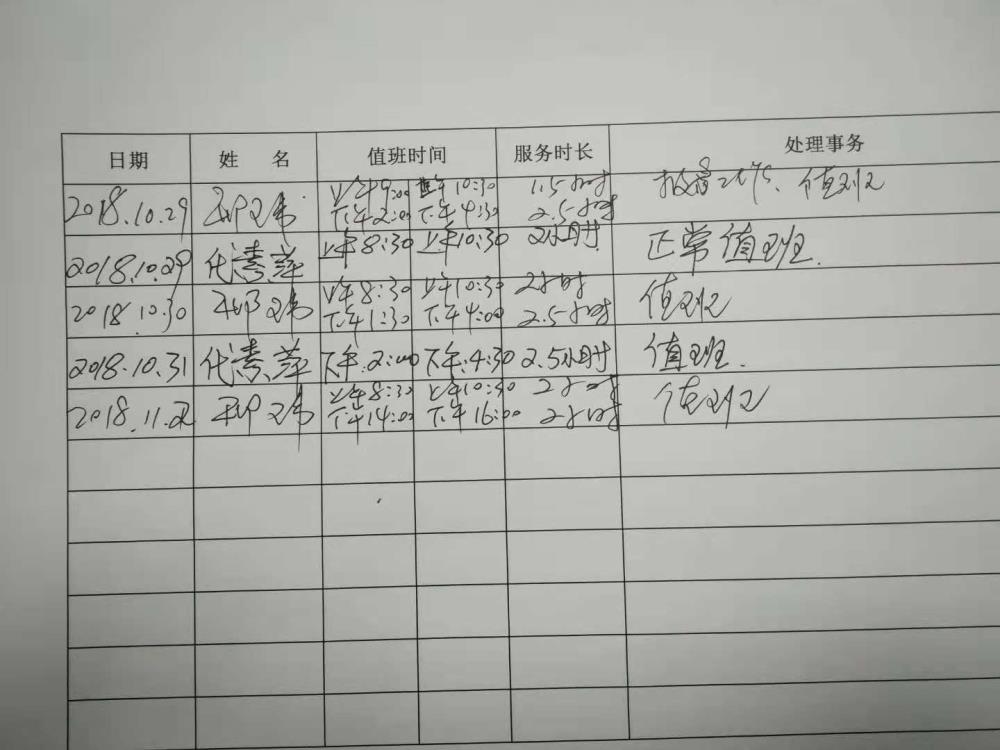 日期 姓 名 值班时间 服务时长 处理事务
2018.10.29 上午9:00 上午10:30 1.5小时 值班
下午2:00 下午4:30 2.5小时
2018.10.29 代素萍 上午8:30 上午10:30 2小时 正常值班.
2018.10.30 上午8:30 上午10:30 2小时 值班
下午1:30 下午4:00 2.5小时
2018.10.31 代素萍 下午.2:00 下午.4:30 2.5小时 值班.
2018.11. 上午8:30 上午10:30 2小时 值班
下午14:00 下午16:00 2小时